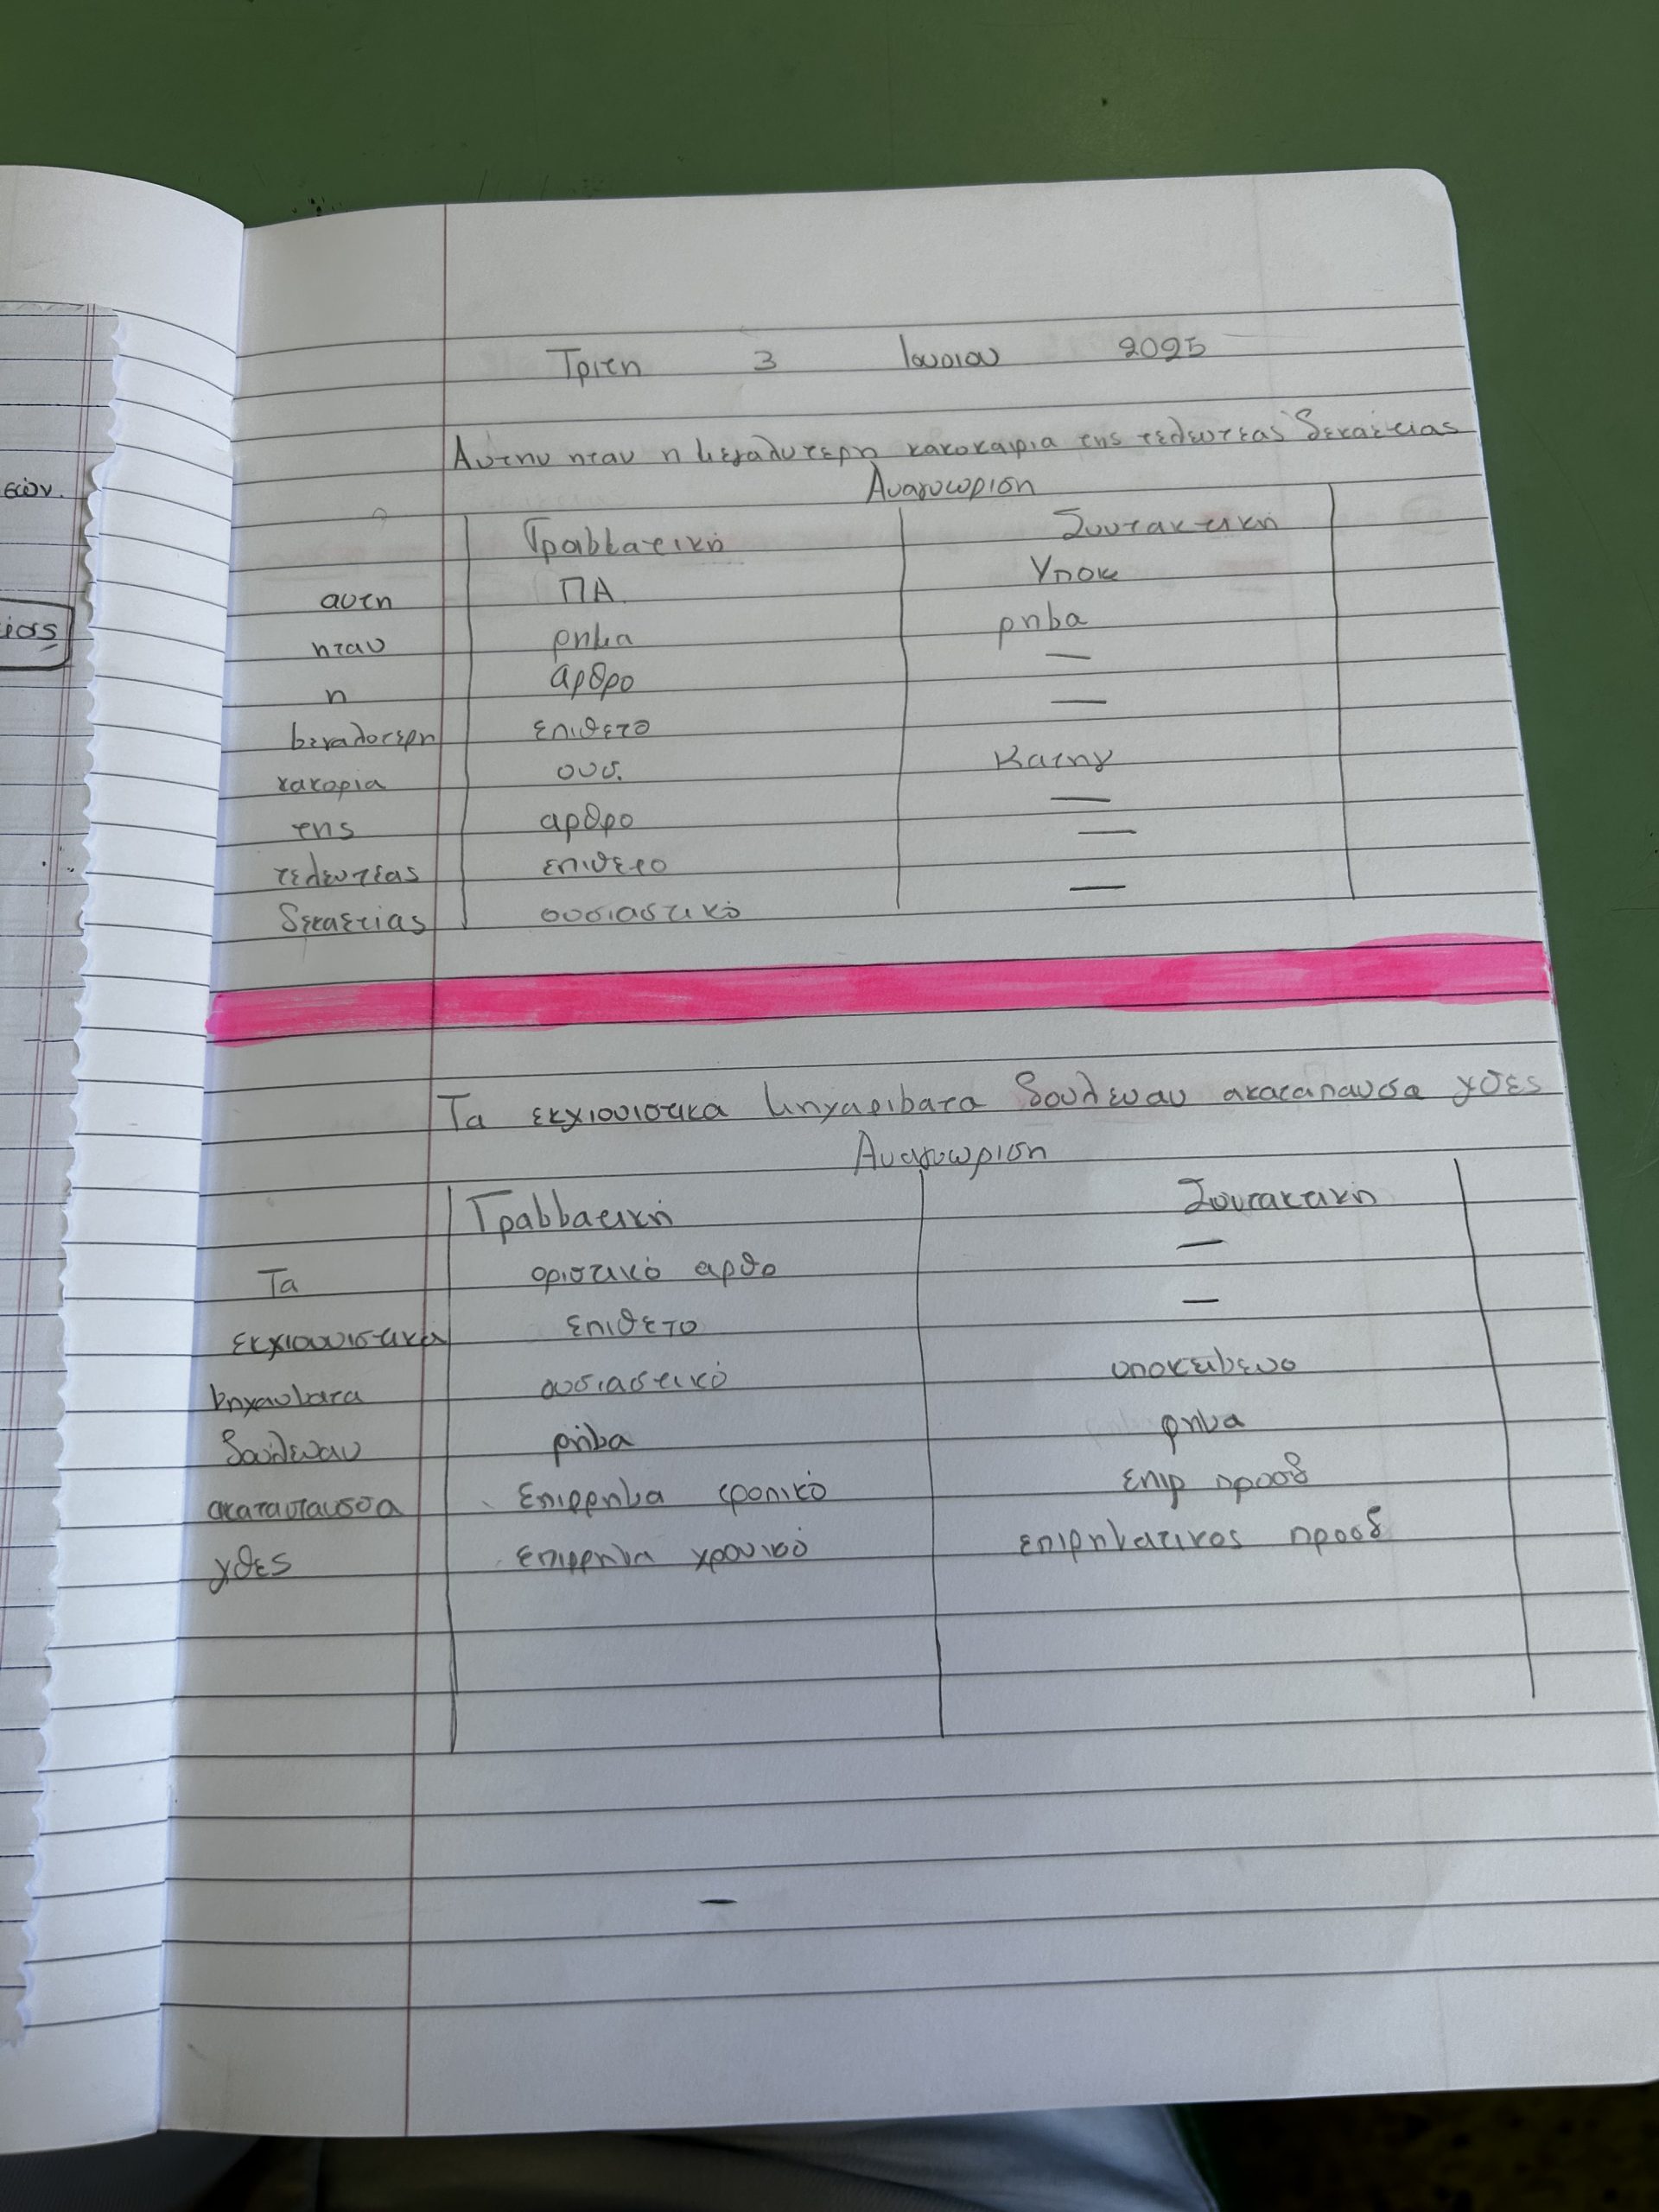 εών.
ίας
Τριτη 3 Ιουνιου 2025
Αυτην ηταν η μεγαλυτερη κακοκαιρια της τελευτεας δεκαετιας
Αναγνωριση
Γραμματική Συντακτική
αυτη ΠΑ Υποκ
ηταν ρημα ρημα
η αρθρο —
μεγαλυτερη επιθετο —
κακορια ουσ. Κατηγ
της αρθρο —
τελευτέας επιθετο —
δεκαετιας ουσιαστικό —
Τα εκχιονιστικα μηχανήματα δουλευαν ακαταπαυσα χθες
Αναγνωριση
Γραμματική Συντακτική
Τα οριστικό αρθο —
εκχιονιστικά επιθετο —
μηχανματα ουσιαστικό υποκείμενο
δουλευαν ρήμα ρημα
ακαταπαυσα επιρρημα τροπικό επιρ προσδ
χθες επιρρημα χρονικό επιρηματικος προσδ
—